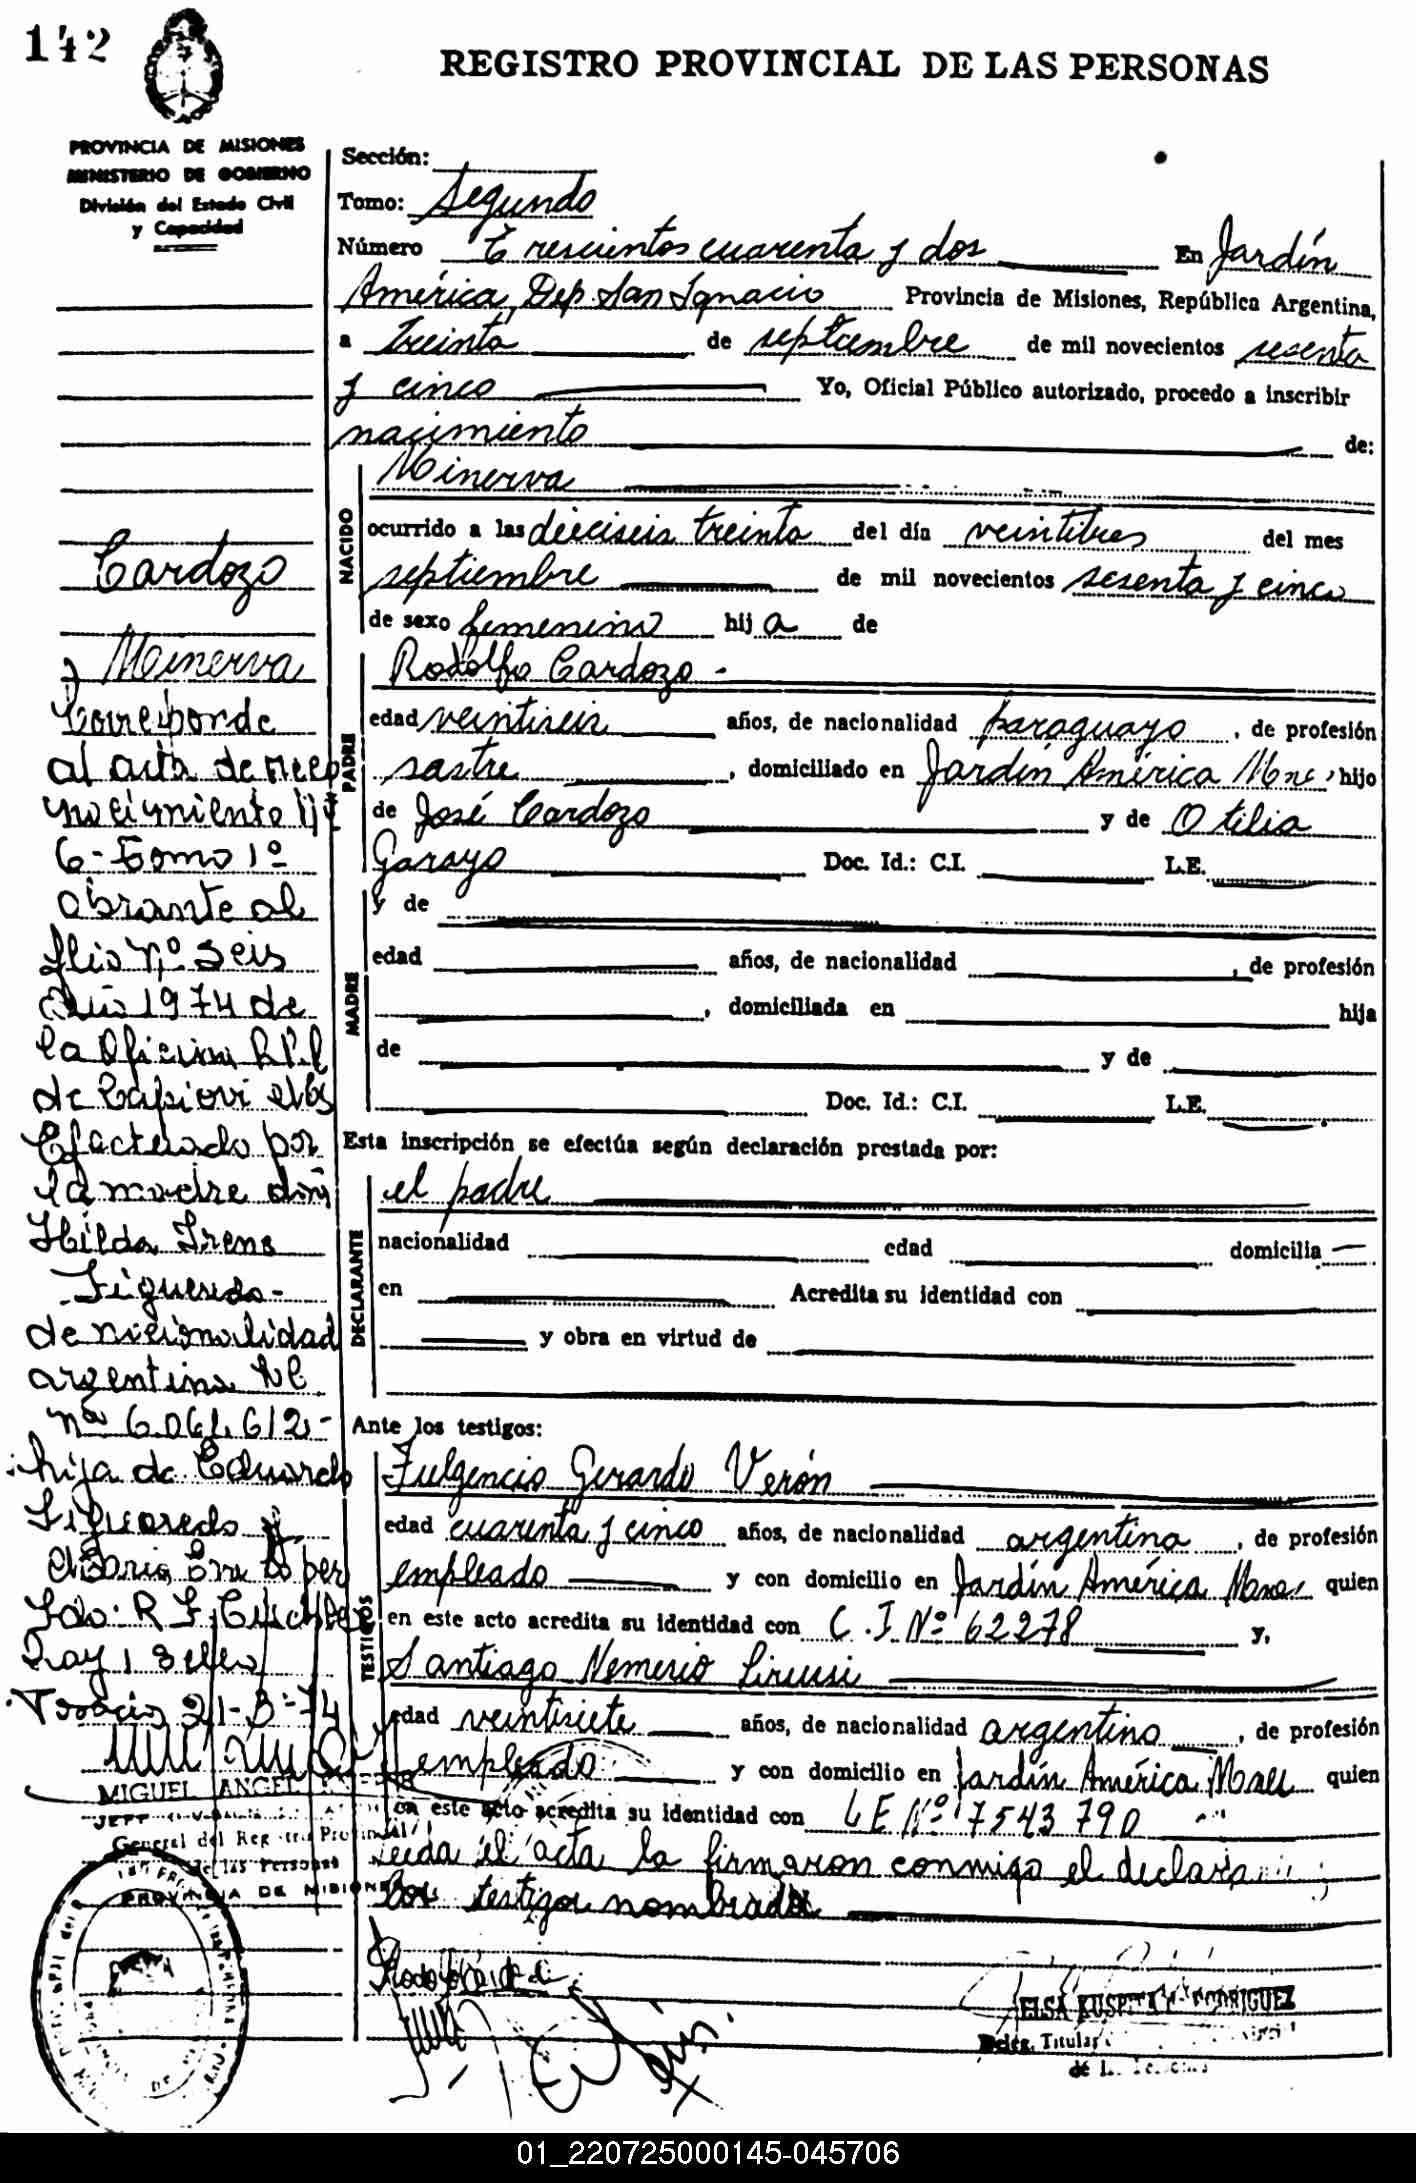 142
REGISTRO PROVINCIAL DE LAS PERSONAS
PROVINCIA DE MISIONES
MINISTERIO DE GOBIERNO
División del Estado Civil
y Capacidad
Cardozo
Minerva
Corresponde
al acta de reco
nocimiento
6- Tomo 1º
obrante al
folio nº seis
año 1974 de
la Oficina
de Capiovi
Efactuado por
la madre doña
Hilda Irene
Figueredo-
de nacionalidad
argentina
nº 6.061.612-
hija de Eduardo
Figueredo y
Maria
Fdo: R F
Hay 1 sello
21-3-74
MIGUEL ANGEL
General del Registro Provincial
de las Personas
PROVINCIA DE MISIONES
Sección:
Tomo: Segundo
Número Trescientos cuarenta y dos En Jardín
América, Dep. San Ignacio Provincia de Misiones, República Argentina,
a treinta de septiembre de mil novecientos sesenta
y cinco Yo, Oficial Público autorizado, procedo a inscribir
nacimiento de:
NACIDO
Minerva
ocurrido a las dieciseis treinta del día veintitres del mes
septiembre de mil novecientos sesenta y cinco
de sexo femenino hija de
PADRE
Rodolfo Cardozo -
edad veintiseis años, de nacionalidad paraguayo, de profesión
sastre, domiciliado en Jardín América Mnes, hijo
de José Cardozo y de Otilia
Garayo Doc. Id.: C.I. L.E.
MADRE
y de
edad años, de nacionalidad , de profesión
, domiciliada en hija
de y de
Doc. Id.: C.I. L.E.
Esta inscripción se efectúa según declaración prestada por:
DECLARANTE
el padre
nacionalidad edad domicilia
en Acredita su identidad con
y obra en virtud de
Ante los testigos:
TESTIGOS
Fulgencio Gerardo Verón
edad cuarenta y cinco años, de nacionalidad argentina, de profesión
empleado y con domicilio en Jardín América Mnes quien
en este acto acredita su identidad con C.I. Nº 62278 y,
Santiago Nemesio
edad veintisiete años, de nacionalidad argentino, de profesión
empleado y con domicilio en Jardín América quien
en este acto acredita su identidad con L E Nº 7543790
Leida el acta la firmaron conmigo el
los testigos nombrados
ELSA RODRIGUEZ
Deleg. Titular
01_220725000145-045706